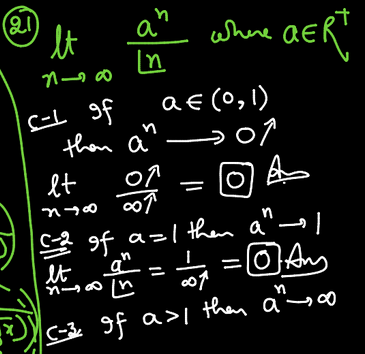 21 lt n→∞ aⁿ/⌊n where a∈R⁺
C-1 If a∈(0,1)
then aⁿ → 0↗
lt n→∞ 0↗/∞↗ = 0 Ans
C-2 If a=1 then aⁿ→1
lt n→∞ aⁿ/⌊n = 1/∞↗ = 0 Ans
C-3 If a>1 then aⁿ→∞
x)